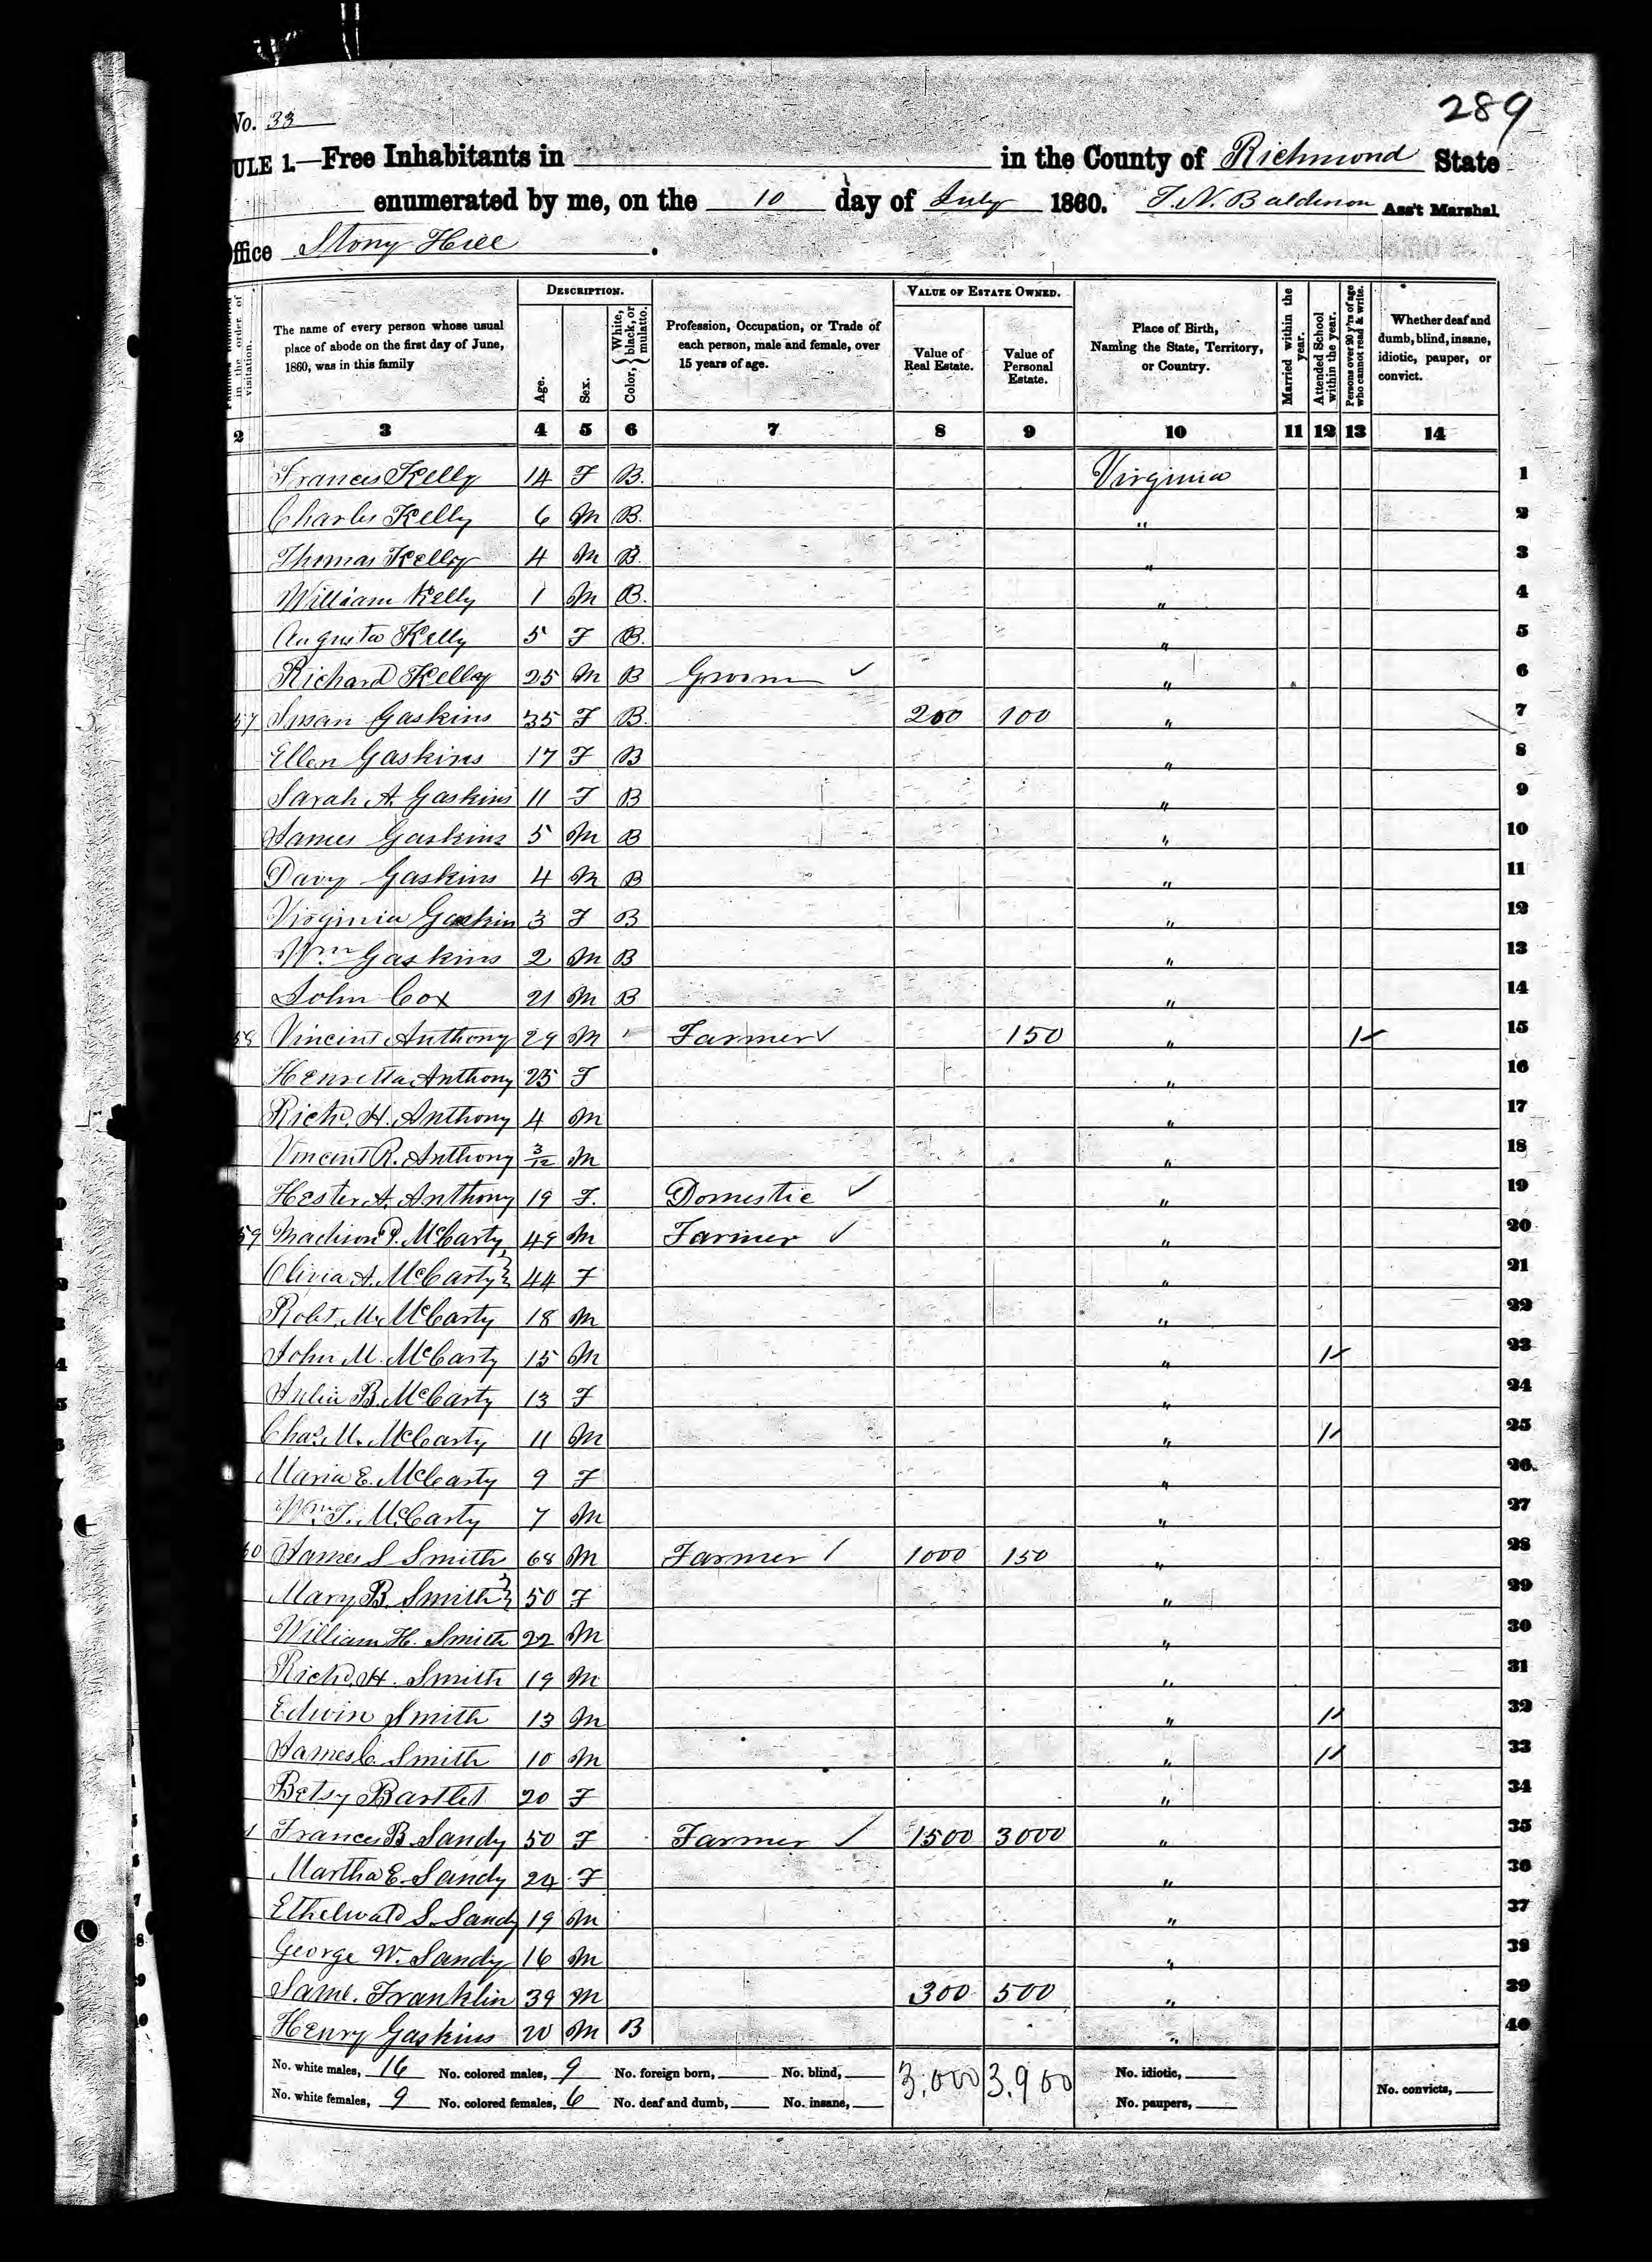 289
No. 33
ULE 1.—Free Inhabitants in in the County of Richmond State
enumerated by me, on the 10 day of July 1860. T. N. Balderson Ass't Marshal.
ffice Stony Hill .
DESCRIPTION. VALUE OF ESTATE OWNED.
in the order of visitation.
The name of every person whose usual place of abode on the first day of June, 1860, was in this family
Age. Sex. Color, { White, black, or mulatto.
Profession, Occupation, or Trade of each person, male and female, over 15 years of age.
Value of Real Estate. Value of Personal Estate.
Place of Birth, Naming the State, Territory, or Country.
Married within the year. Attended School within the year. Persons over 20 y'rs of age who cannot read & write.
Whether deaf and dumb, blind, insane, idiotic, pauper, or convict.
2 3 4 5 6 7 8 9 10 11 12 13 14
Frances Kelly 14 F B. Virginia 1
Charles Kelly 6 M B. " 2
Thomas Kelly 4 M B. " 3
William Kelly 1 M B. " 4
Augusta Kelly 5 F B. " 5
Richard Kelly 25 M B Groom ✓ " 6
57 Susan Gaskins 35 F B. 200 100 " 7
Ellen Gaskins 17 F B " 8
Sarah A. Gaskins 11 F B " 9
James Gaskins 5 M B " 10
Davy Gaskins 4 M B " 11
Virginia Gaskin 3 F B " 12
Wm Gaskins 2 M B " 13
John Cox 21 M B " 14
58 Vincent Anthony 29 M Farmer ✓ 150 " 1 15
Henrietta Anthony 25 F " 16
Richd. H. Anthony 4 M " 17
Vincent R. Anthony 3/12 M " 18
Hester A. Anthony 19 F. Domestic ✓ " 19
59 Madison P. McCarty 49 M Farmer ✓ " 20
Olivia A. McCarty 44 F " 21
Robt. M. McCarty 18 M " 22
John M. McCarty 15 M " 1 23
Julia B. McCarty 13 F " 24
Chas. M. McCarty 11 M " 1 25
Maria E. McCarty 9 F " 26
Wm. T. McCarty 7 M " 27
60 James S Smith 68 M Farmer / 1000 150 " 28
Mary B. Smith 50 F " 29
William H. Smith 22 M " 30
Richd. H. Smith 19 M " 31
Edwin Smith 13 M " 1 32
James C. Smith 10 M " 1 33
Betsy Bartlet 20 F " 34
1 Frances B. Sandy 50 F Farmer ✓ 1500 3000 " 35
Martha E. Sandy 24 F " 36
Ethelwald S. Sandy 19 M " 37
George W. Sandy 16 M " 38
Saml. Franklin 39 M 300 500 " 39
Henry Gaskins 20 M B " 40
No. white males, 16 No. colored males, 9 No. foreign born, No. blind, 3,000 3,900 No. idiotic,
No. white females, 9 No. colored females, 6 No. deaf and dumb, No. insane, No. paupers, No. convicts,